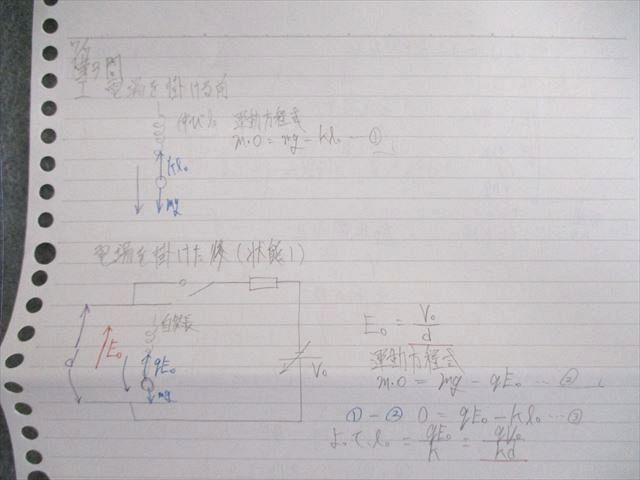 第3回
I 電場を掛ける前
伸び l₀ 運動方程式
m・0 = mg - kl₀ … ①
kl₀
mg
電場を掛けた後 (状態1)
自然長
d
E₀
qE₀
mg
V₀
E₀ = V₀/d
運動方程式
m・0 = mg - qE₀ … ②
① - ② 0 = qE₀ - kl₀ … ③
よって、l₀ = qE₀/k = qV₀/kd